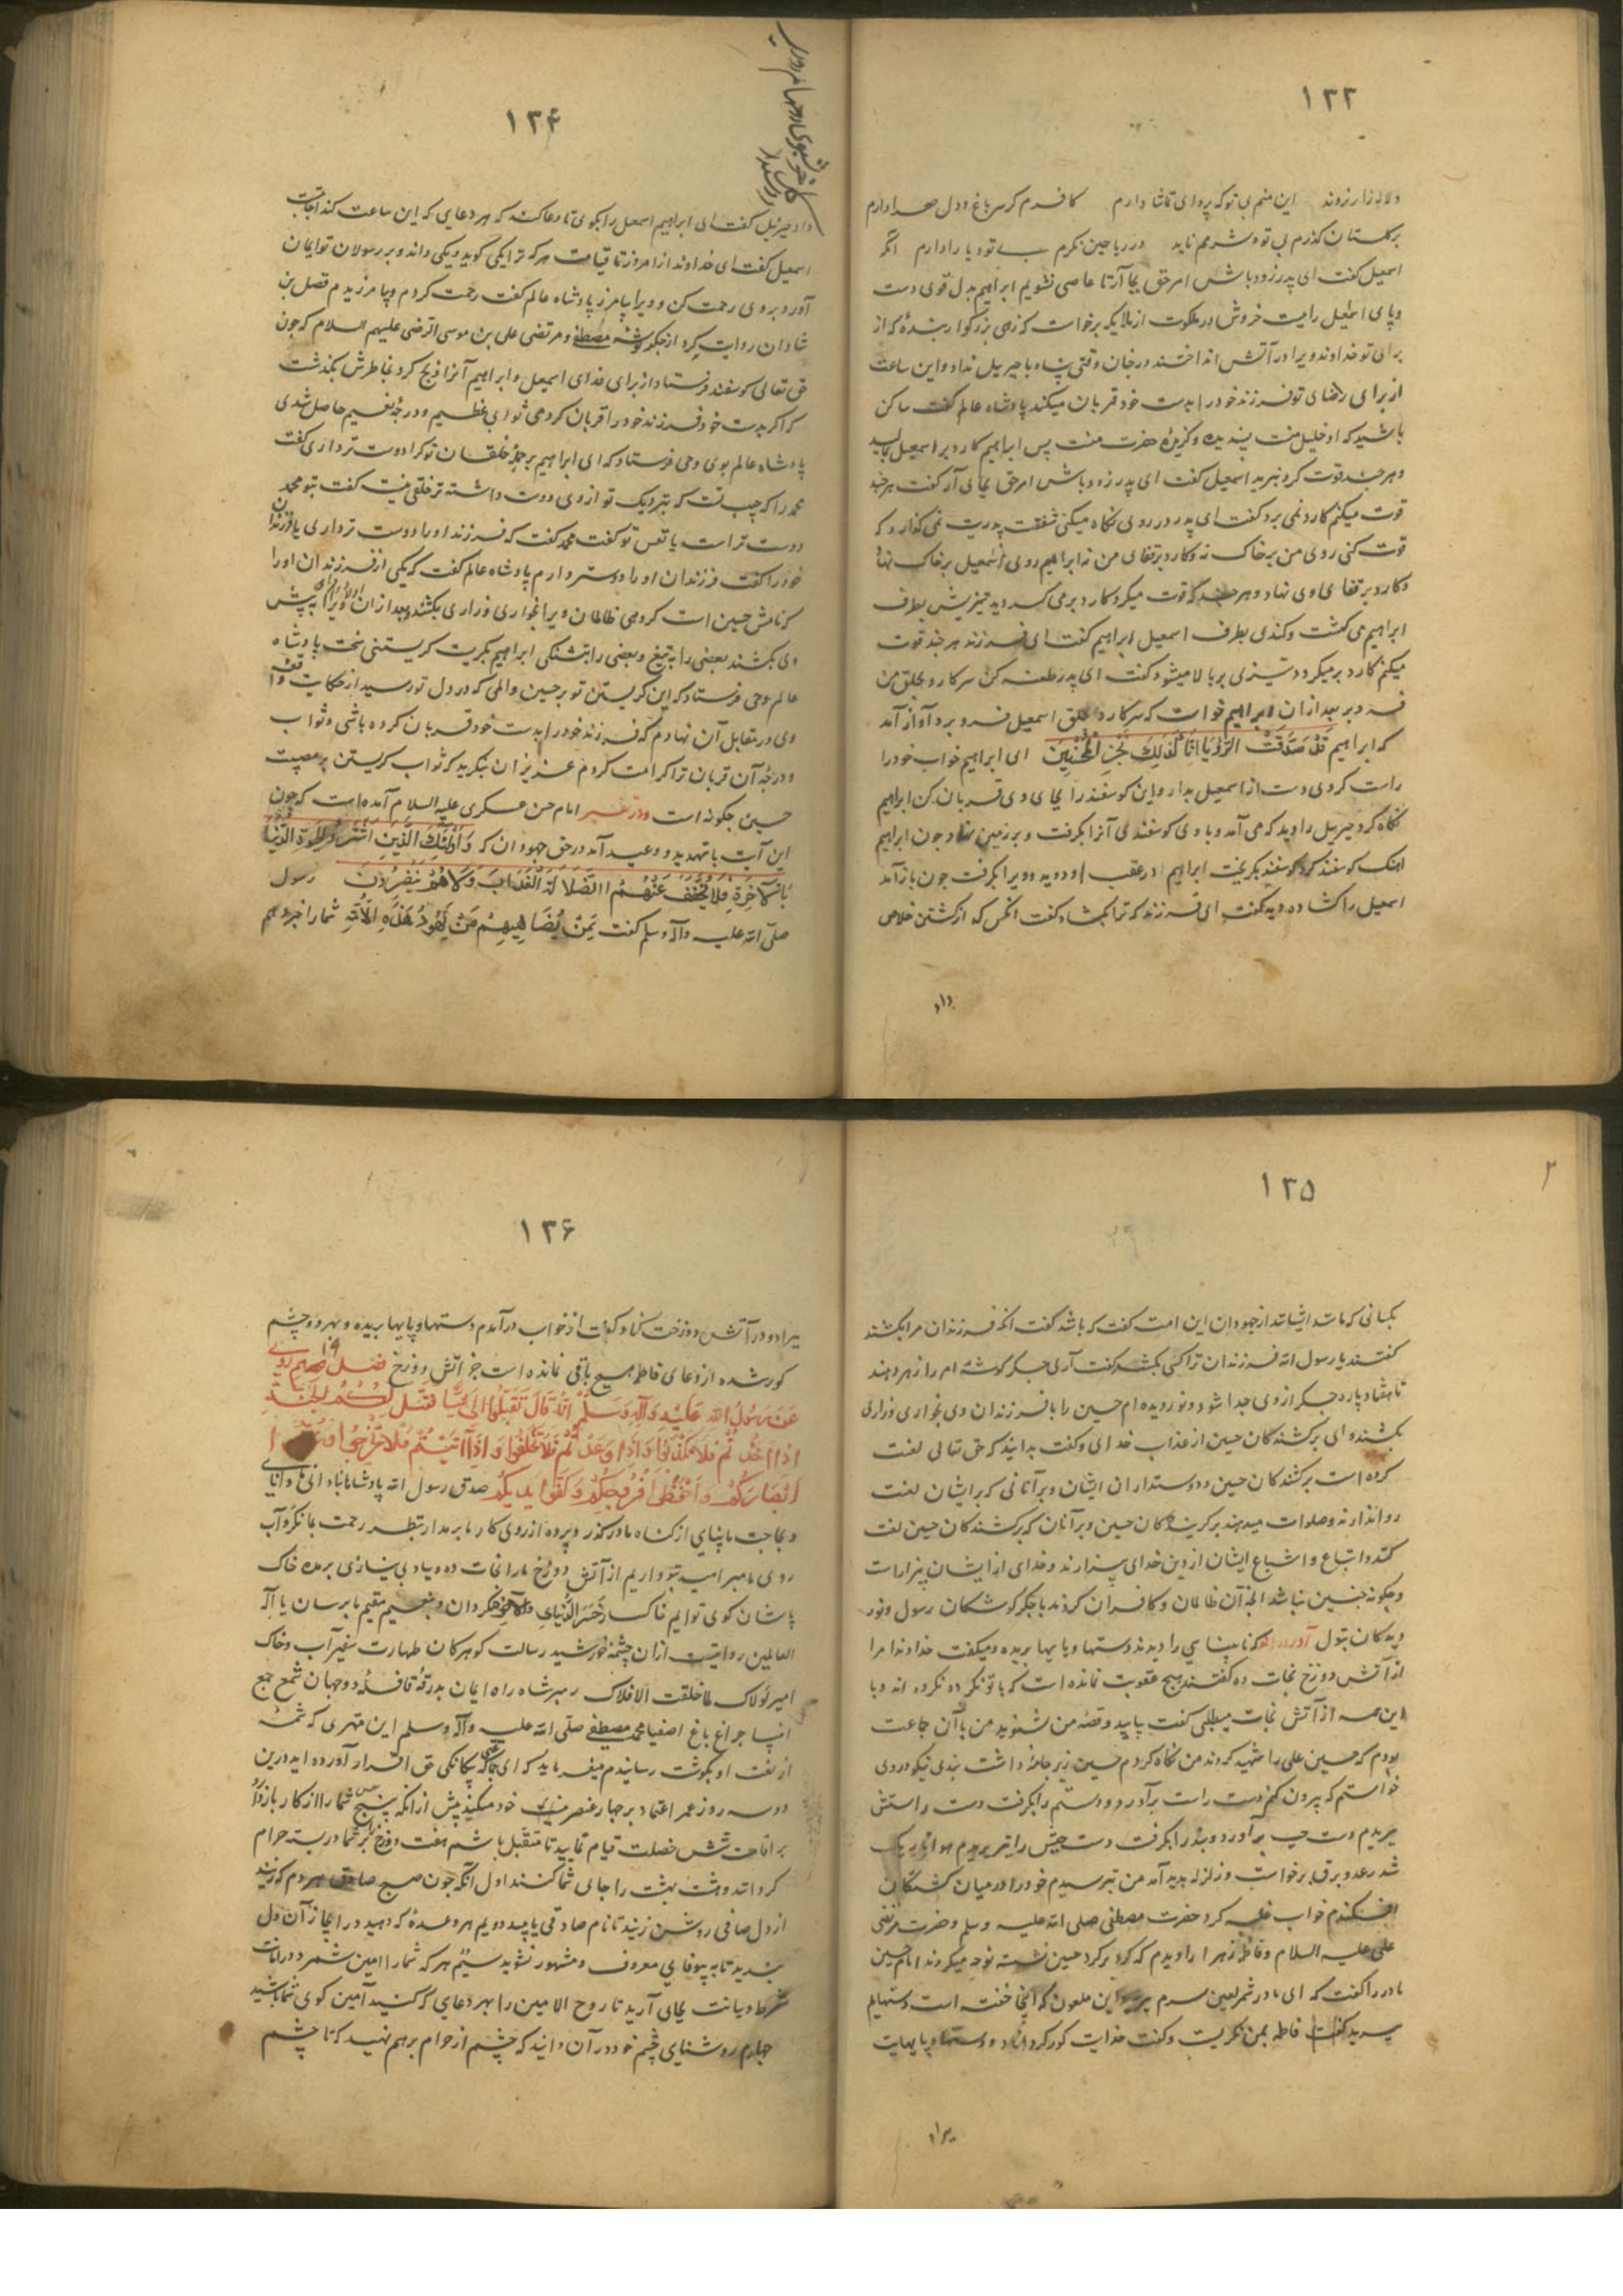 ۱۳۳
ولاله زار زوند این منم بی تو که پروای تماشا دارم کافرم کر سر باغ و دل صحرا دارم
بر کلستان کذرم بی تو و شرمم ناید در ریاحین نکرم بی تو و یارا دارم اگر
اسمعیل گفت ای پدر زود باش امر حق بجا آر تا عاصی نشویم ابراهیم بدل قوی دست
و پای اسمعیل را بست خروش در ملکوت از ملایکه برخواست که زهی بزرکوار بنده که از
برای تو خداوند ویرا در آتش انداختند در جان وقتی پناه با جبرییل نداد و این ساعت
از برای رضای تو فرزند خود را بدست خود قربان میکند پادشاه عالم گفت ساکن
باشید که او خلیل منت پسندیده و کزیدۀ حضرت منت پس ابراهیم کارد بر اسمعیل مالید
و هر چند قوت کرد نبرید اسمعیل گفت ای پدر زود باش امر حق بجای آر گفت هر چند
قوت میکنم کارد نمی برد گفت ای پدر در روی نکاه میکنی شفقت پدریت نمی گذارد که
قوت کنی روی من بر خاک نه و کارد بر قفای من نه ابراهیم روی اسمعیل بر خاک نهاد
و کارد بر قفای وی نهاد و هر چند که قوت میکرد کارد بر می گردید تیزیش بطرف
ابراهیم می گشت و کندی بطرف اسمعیل ابراهیم گفت ای فرزند هر چند قوت
میکنم کارد بر میکردد و تیزی بر بالا میشود گفت ای پدر طعنه کن سر کارد بحلق من
فرو بر بعد ازان ابراهیم خواست که سر کارد بحلق اسمعیل فرو برد آواز آمد
که ابراهیم قَدْ صَدَّقْتَ الرُّؤْيَا اِنَّا كَذٰلِكَ نَجْزِي الْمُحْسِنِينَ ای ابراهیم خواب خود را
راست کردی دست از اسمعیل بدار و این کوسفند را بجای وی قربان کن ابراهیم
نکاه کرد جبرییل را دید که می آمد و با وی کوسفندی آنرا بکرفت و بر زمین نهاد چون ابراهیم
اهنک کوسفند کرد کوسفند بکریخت ابراهیم از عقب او دوید و ویرا بکرفت چون باز آمد
اسمعیل را کشاده دید گفت ای فرزند که ترا بکشاد گفت انکس که از کشتن خلاص
داد
۱۳۴
داد جبرئیل گفت ای ابراهیم اسمعیل را بکوی تا دعا کند که هر دعایی که این ساعت کند اجابتست
اسمعیل گفت ای خداوند از امروز تا قیامت هر که ترا یکی گوید و یکی داند و بر رسولان تو ایمان
آورد بروی رحمت کن و ویرا بیامرز پادشاه عالم گفت رحمت کردم و بیامرزیدم فضل بن
شادان روایت کرد از جکر کوشه مصطفی و مرتضی علی بن موسی الرضی علیهم السلام که چون
حق تعالی کوسفند فرستاد از برای فدای اسمعیل و ابراهیم آنرا ذبح کرد بخاطرش بکذشت
که اکر بدست خود فرزند خود را قربان کردمی ثوابی عظیم و درجۀ نعیم حاصل شدی
پادشاه عالم بوی وحی فرستاد که ای ابراهیم بر جمله خلقان تو کرا دوست تر داری گفت
محمد را که حبیب تست که بنزدیک تو از وی دوست داشته تر خلقی نیست گفت بتو محمد
دوست تر است یا نفس تو گفت محمد گفت که فرزند او را دوست تر داری یا فرزند
خود را گفت فرزندان او را دوستر دارم پادشاه عالم گفت که یکی از فرزندان او را
که نامش حسین است کروهی ظالمان ویرا بخواری و زاری بکشند و بعد ازان اولاد ویرا پیش
وی بکشند بعضی را بتیغ و بعضی را بتشنکی ابراهیم بکریست کریستنی سخت پادشاه
عالم وحی فرستاد که این کریستن تو بر حسین و المی که در دل تو رسید از حکایت واقعۀ
وی در مقابل آن نهادم که فرزند خود را بدست خود قربان کرده باشی و ثواب
و درجۀ آن قربان ترا کرامت کردم عزیزان بنکرید که ثواب کریستن بر مصیبت
حسین چکونه است و در تفسیر امام حسن عسکری علیه السلام آمده است که چون
این آیت با تهدید و وعید آمد در حق جهودان که اُولٰئِكَ الَّذِينَ اشْتَرَوُا الْحَيٰوةَ الدُّنْيَا
بِالْاٰخِرَةِ فَلَا يُخَفَّفُ عَنْهُمُ الْعَذَابُ وَلَا هُمْ يُنْصَرُونَ رسول
صلی الله علیه وآله وسلم گفت بِمَنْ يُضَاهِيهِمْ مِنْ يَهُودِ هٰذِهِ الْاُمَّةِ شما را خبر دهم
۱۳۵
بکسانی که مانند ایشانند از جهودان این امت گفت که باشد گفت انکه فرزندان مرا بکشند
گفتند یا رسول الله فرزندان ترا کسی بکشد گفت آری جکر کوشه ام را زهر دهند
تا هفتاد پاره جکر از وی جدا شود و نور دیده ام حسین را با فرزندان وی بخواری و زاری
بکشند وای بر کشندکان حسین از عذاب خدای و گفت بدانید که حق تعالی لعنت
کرده است بر کشندکان حسین و دوستداران ایشان و بر آنانی که بر ایشان لعنت
روا ندارند و صلوات میدهد بر کریندکان حسین و بر آنان که بر کشندکان حسین لعنت
کنند و اتباع و اشیاع ایشان از دین خدای بیزارند و خدای از ایشان بیزار است
و چکونه چنین نباشد انچه آن ظالمان و کافران کردند با جکر کوشکان رسول و نور
دیدکان بتول آورده اند که نابینایی را دیدند دستها و پایها بریده و میکفت خداوندا مرا
از آتش دوزخ نجات ده گفتند هیچ عقوبت نمانده است که با تو نکرده اند و با
این همه از آتش نجات میطلبی گفت بیایید و قصه من شنوید من با آن جماعت
بودم که حسین علی را شهید کردند من نکاه کردم حسین زیر جامۀ داشت بندی نیکو در وی
خواستم که بیرون کنم دست راست برآورد و دستم را بکرفت دست راستش
ببریدم دست چپ برآورد و بند را بکرفت دست چپش را نیز بریدم هوا تاریک
شد رعد و برق برخواست و زلزله پدید آمد من بترسیدم خود را در میان کشتکان
افکندم خواب غلبه کرد حضرت مصطفی صلی الله علیه وسلم و حضرت مرتضی
علی علیه السلام و فاطمه زهرا را دیدم که کرد بر کرد حسین نشسته نوحه میکردند امام حسین
مادر را گفت که ای مادر شمر لعین سرم برید و این ملعون که اینجا خفته است دستهایم
ببرید فاطمه بمن نکریست و گفت خدایت کور کرداناد و دستها و پایهایت
ببراد
۱۳۶
ببراد و در آتش دوزخت کناد گفت از خواب درآمدم دستها و پایها بریده و بهر دو چشم
کور شده از دعای فاطمه هیچ باقی نمانده است جز آتش دوزخ فصل ۱۹
عَنْ رَسُولِ اللّٰهِ عَلَيْهِ وَآلِهِ وَسَلَّمَ اَنَّهُ قَالَ تَقَبَّلُوا اِلَيَّ سِتًّا اَتَقَبَّلْ لَكُمُ الْجَنَّةَ
اِذَا حَدَّثْتُمْ فَلَا تَكْذِبُوا وَاِذَا وَعَدْتُمْ فَلَا تَخْلِفُوا وَاِذَا
اَبْصَارَكُمْ وَاحْفَظُوا فُرُوجَكُمْ وَكُفُّوا اَيْدِيَكُمْ صدق رسول الله پادشاها بدانایی و توانایی
و بحاجت ما بینایی از کناه ما در کذر و پرده از روی کار ما بر مدار بنظر رحمت بما نکر و آب
روی ما مبر امید بتو داریم از آتش دوزخ ما را نجات ده و بباد بی نیازی بر مده خاک
العالمین روایتست ازان چشمۀ خورشید رسالت کوهر کان طهارت سفیر آب و خاک
امیر لولاک لما خلقت الافلاک رهبر شاه راه ایمان بدرقۀ قافلۀ دو جهان شمع جمع
انبیا چراغ باغ اصفیا محمد مصطفی صلی الله علیه وآله وسلم این مهتری که شمۀ
از نعت او بکوشت رسانیدم میفرماید که ای جماعتی که بیکانکی حق اقرار آورده اید درین
دو سه روز عمر اعتماد بر چهار عنصر خود مکنید پیش ازانکه پنج حس شما را از کار باز دارد
بر اقامت شش خصلت قیام نمایید تا متقبل باشم هفت دوزخ بر شما در بسته حرام
کردانند و هشت بهشت را جای شما کنند اول انکه چون صبح صادق هر دم که زنید
از دل صافی روشن زنید تا نام صادقی یابید دویم هر وعدۀ که دهید در انجاز آن دل
بندید تا به بیوفایی معروف و مشهور نشوید سیّم هر که شما را امین شمرد در امانت
شرط دیانت بجای آرید تا روح الامین را بهر دعایی که کنید آمین کوی شما باشید
چهارم روشنایی چشم خود در آن دانید که چشم از حرام بر هم نهید که تا چشم